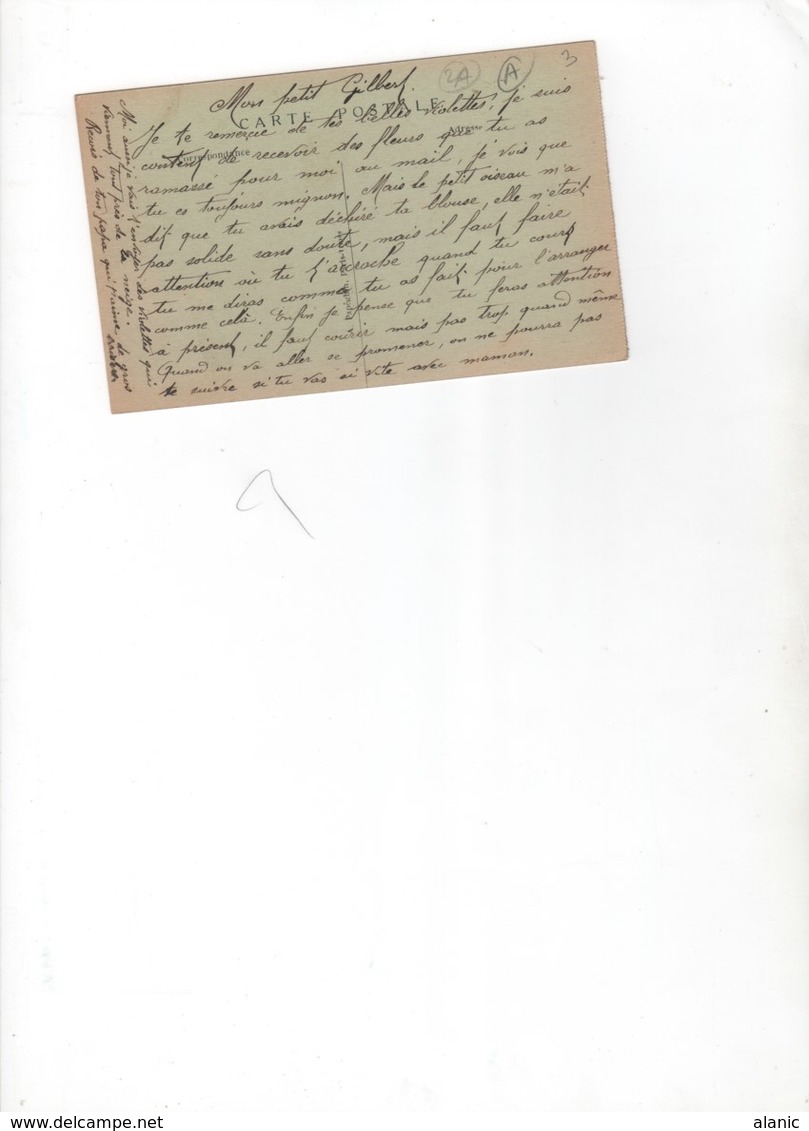 3
2A
A
Mon petit Gilbert.
CARTE POSTALE
Correspondance
Adresse
Je te remercie de tes belles violettes, je suis
content de recevoir des fleurs que tu as
ramassé pour moi au mail, je vois que
tu es toujours mignon. Mais le petit oiseau m'a
dit que tu avais déchiré ta blouse, elle n'était
pas solide sans doute, mais il faut faire
attention où tu t'accroche quand tu cours
tu me diras comme tu as fait pour l'arranger
comme celà. Enfin je pense que tu feras attention
à présent, il faut courir mais pas trop quand même
Quand on va aller se promener, on ne pourra pas
te suivre si tu vas si vite avec maman.
Moi aussi je vais t'envoyer des violettes qui
viennent tout près de la neige.
Reçois de ton papa qui t'aime de gros
baisers
delcampe.net
alanic